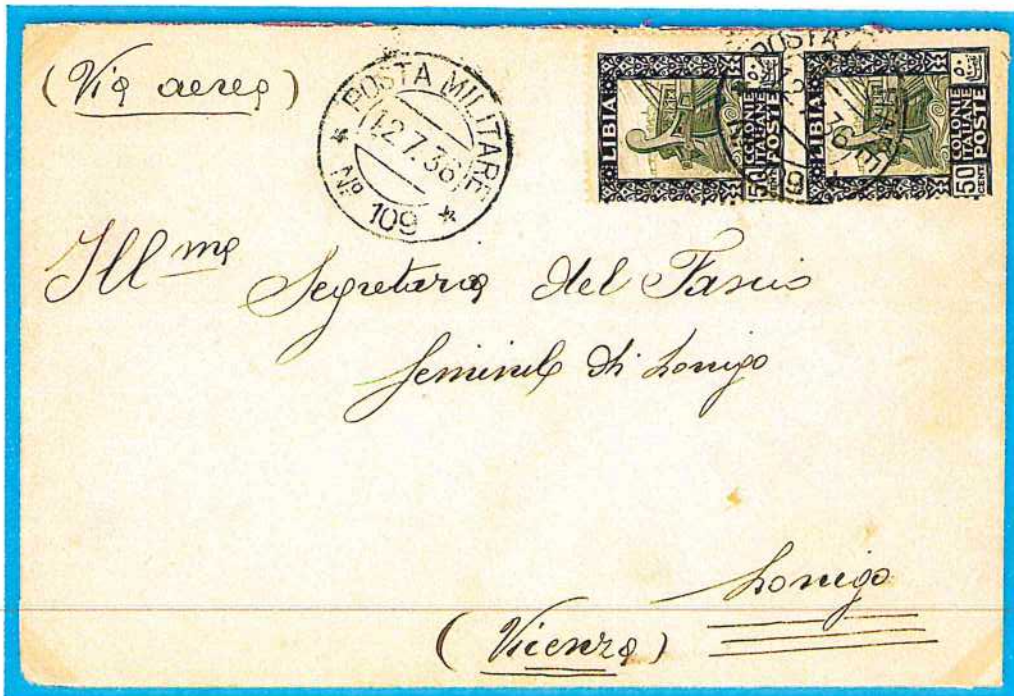 (Via aerea)
POSTA MILITARE
12.7.36
Nº 109
LIBIA
COLONIE ITALIANE
POSTE
50 CENT
٥٠
LIBIA
COLONIE ITALIANE
POSTE
50 CENT
٥٠
Ill ma
Segretaria del Fascio
feminile di Lonigo
Lonigo
(Vicenza)